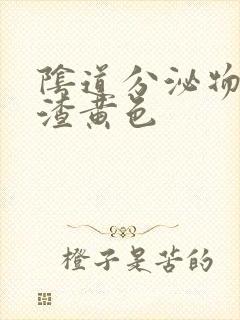 陰道分泌物
渣黄色
橙子是苦的